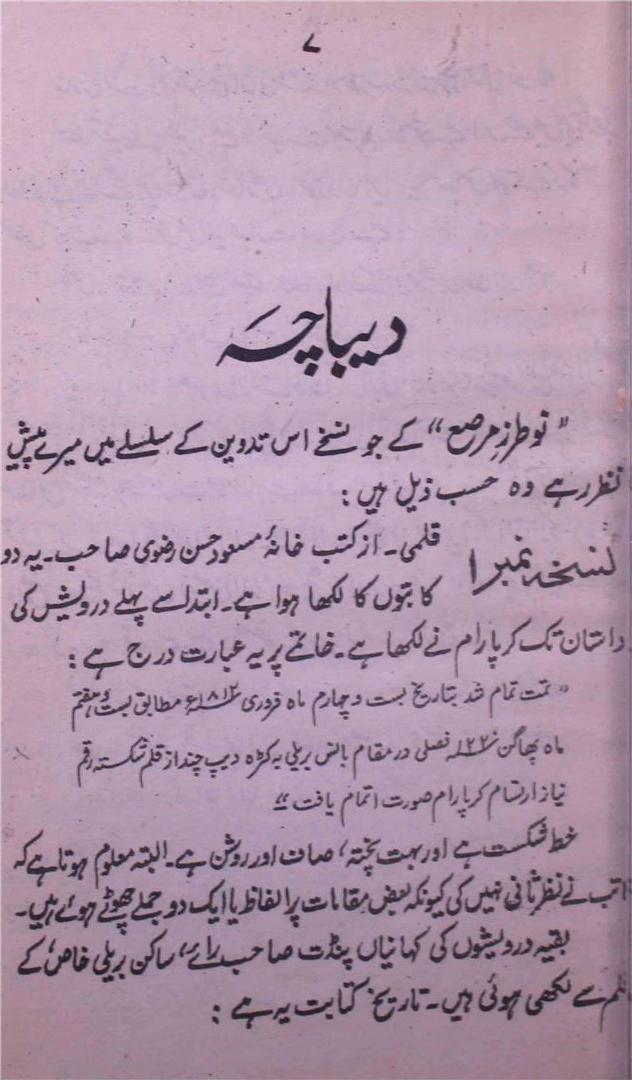 ۷
دیباچہ
”نو طرزِ مرصع“ کے جو نسخے اس تدوین کے سلسلے میں میرے پیشِ
نظر رہے وہ حسب ذیل ہیں :
نسخہ نمبر ۱ قلمی۔ از کتب خانۂ مسعود حسن رضوی صاحب۔ یہ دو
کاتبوں کا لکھا ہوا ہے۔ ابتدا سے پہلے درویش کی
داستان تک کرپا رام نے لکھا ہے۔ خاتمے پر یہ عبارت درج ہے :
”تمت تمام شد بتاریخ بست و چہارم ماہ فروری ۱۸۱۲ء مطابق بست و ہفتم
ماہ پھاگن ۱۲۲۰ فصلی در مقام بانس بریلی بہ کٹرہ دیپ چند از قلم شکستہ رقم
نیاز ارتسام کرپا رام صورت اتمام یافت“
خط شکست ہے اور بہت پختہ، صاف اور روشن ہے۔ البتہ معلوم ہوتا ہے کہ
اتب نے نظر ثانی نہیں کی کیونکہ بعض مقامات پر الفاظ یا ایک دو جملے چھوٹے ہوئے ہیں۔
بقیہ درویشوں کی کہانیاں پنڈت صاحب رائے، ساکن بریلی خاص کے
قلم سے لکھی ہوئی ہیں۔ تاریخ کتابت یہ ہے :